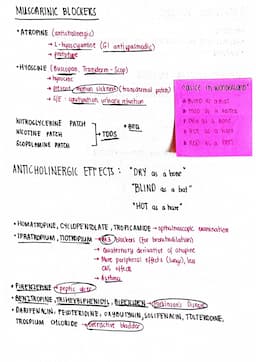 MUSCARINIC BLOCKERS
• ATROPINE (anticholinergic)
→ L-hyoscyamine (GI antispasmodic)
→ prototype
• HYOSCINE (Buscopan, Transderm-Scop)
→ hyoscine
→ motion sickness (transdermal patch)
→ S/E: constipation, urinary retention
NITROGLYCERINE PATCH
NICOTINE PATCH → TDDS
SCOPOLAMINE PATCH
"alice in wonderland"
BLIND as a bat
MAD as a hatter
DRY as a bone
HOT as a hare
RED as a beet
ANTICHOLINERGIC EFFECTS: "DRY as a bone"
"BLIND as a bat"
"HOT as a hare"
• HOMATROPINE, CYCLOPENTOLATE, TROPICAMIDE → ophthalmoscopic examination
• IPRATROPIUM, TIOTROPIUM → M3 blockers (for bronchodilation)
→ Quaternary derivative of atropine
→ More peripheral effects (lungs), less
CNS effect
→ Asthma
• PIRENZEPINE → peptic ulcer
• BENZTROPINE, TRIHEXYPHENIDYL, BIPERIDEN → Parkinson's Disease
• DARIFENACIN, FESOTERODINE, OXYBUTYNIN, SOLIFENACIN, TOLTERODINE,
TROSPIUM CHLORIDE → overactive bladder